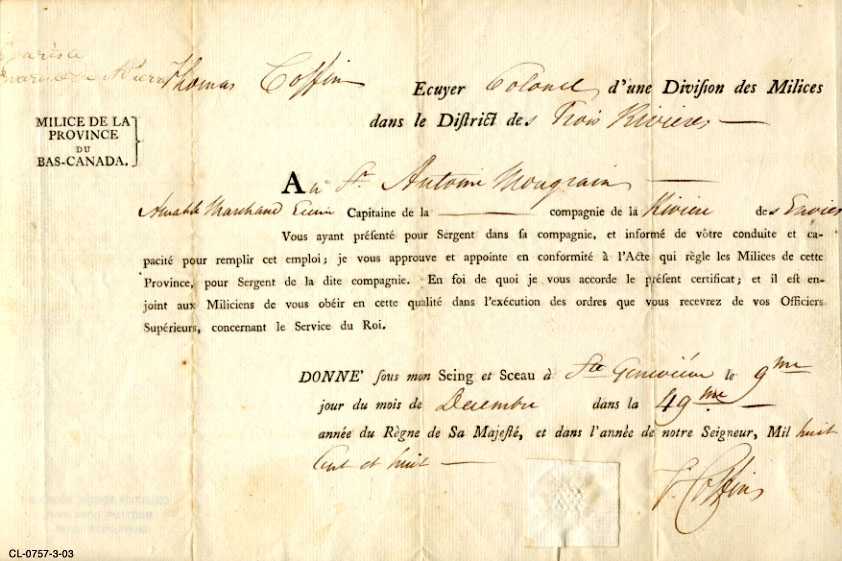 Thomas Coffin Ecuyer Colonel d'une Diviſion des Milices
dans le Diſtrict des Trois Rivieres
MILICE DE LA
PROVINCE
DU
BAS-CANADA.
Au Sr. Antoine Mongrain
Amable Marchand Ecuier Capitaine de la compagnie de la Riviere des Envies
Vous ayant préſenté pour Sergent dans ſa compagnie, et informé de vôtre conduite et ca-
pacité pour remplir cet emploi; je vous approuve et appointe en conformité à l'Acte qui règle les Milices de cette
Province, pour Sergent de la dite compagnie. En foi de quoi je vous accorde le préſent certificat; et il eſt en-
joint aux Miliciens de vous obéir en cette qualité dans l'exécution des ordres que vous recevrez de vos Officiers
Supérieurs, concernant le Service du Roi.
DONNE' ſous mon Seing et Sceau à Ste Genevieve le 9me
jour du mois de Decembre dans la 49me
année du Règne de Sa Majeſté, et dans l'année de notre Seigneur, Mil huit
Cent et huit
T. Coffin
CL-0757-3-03